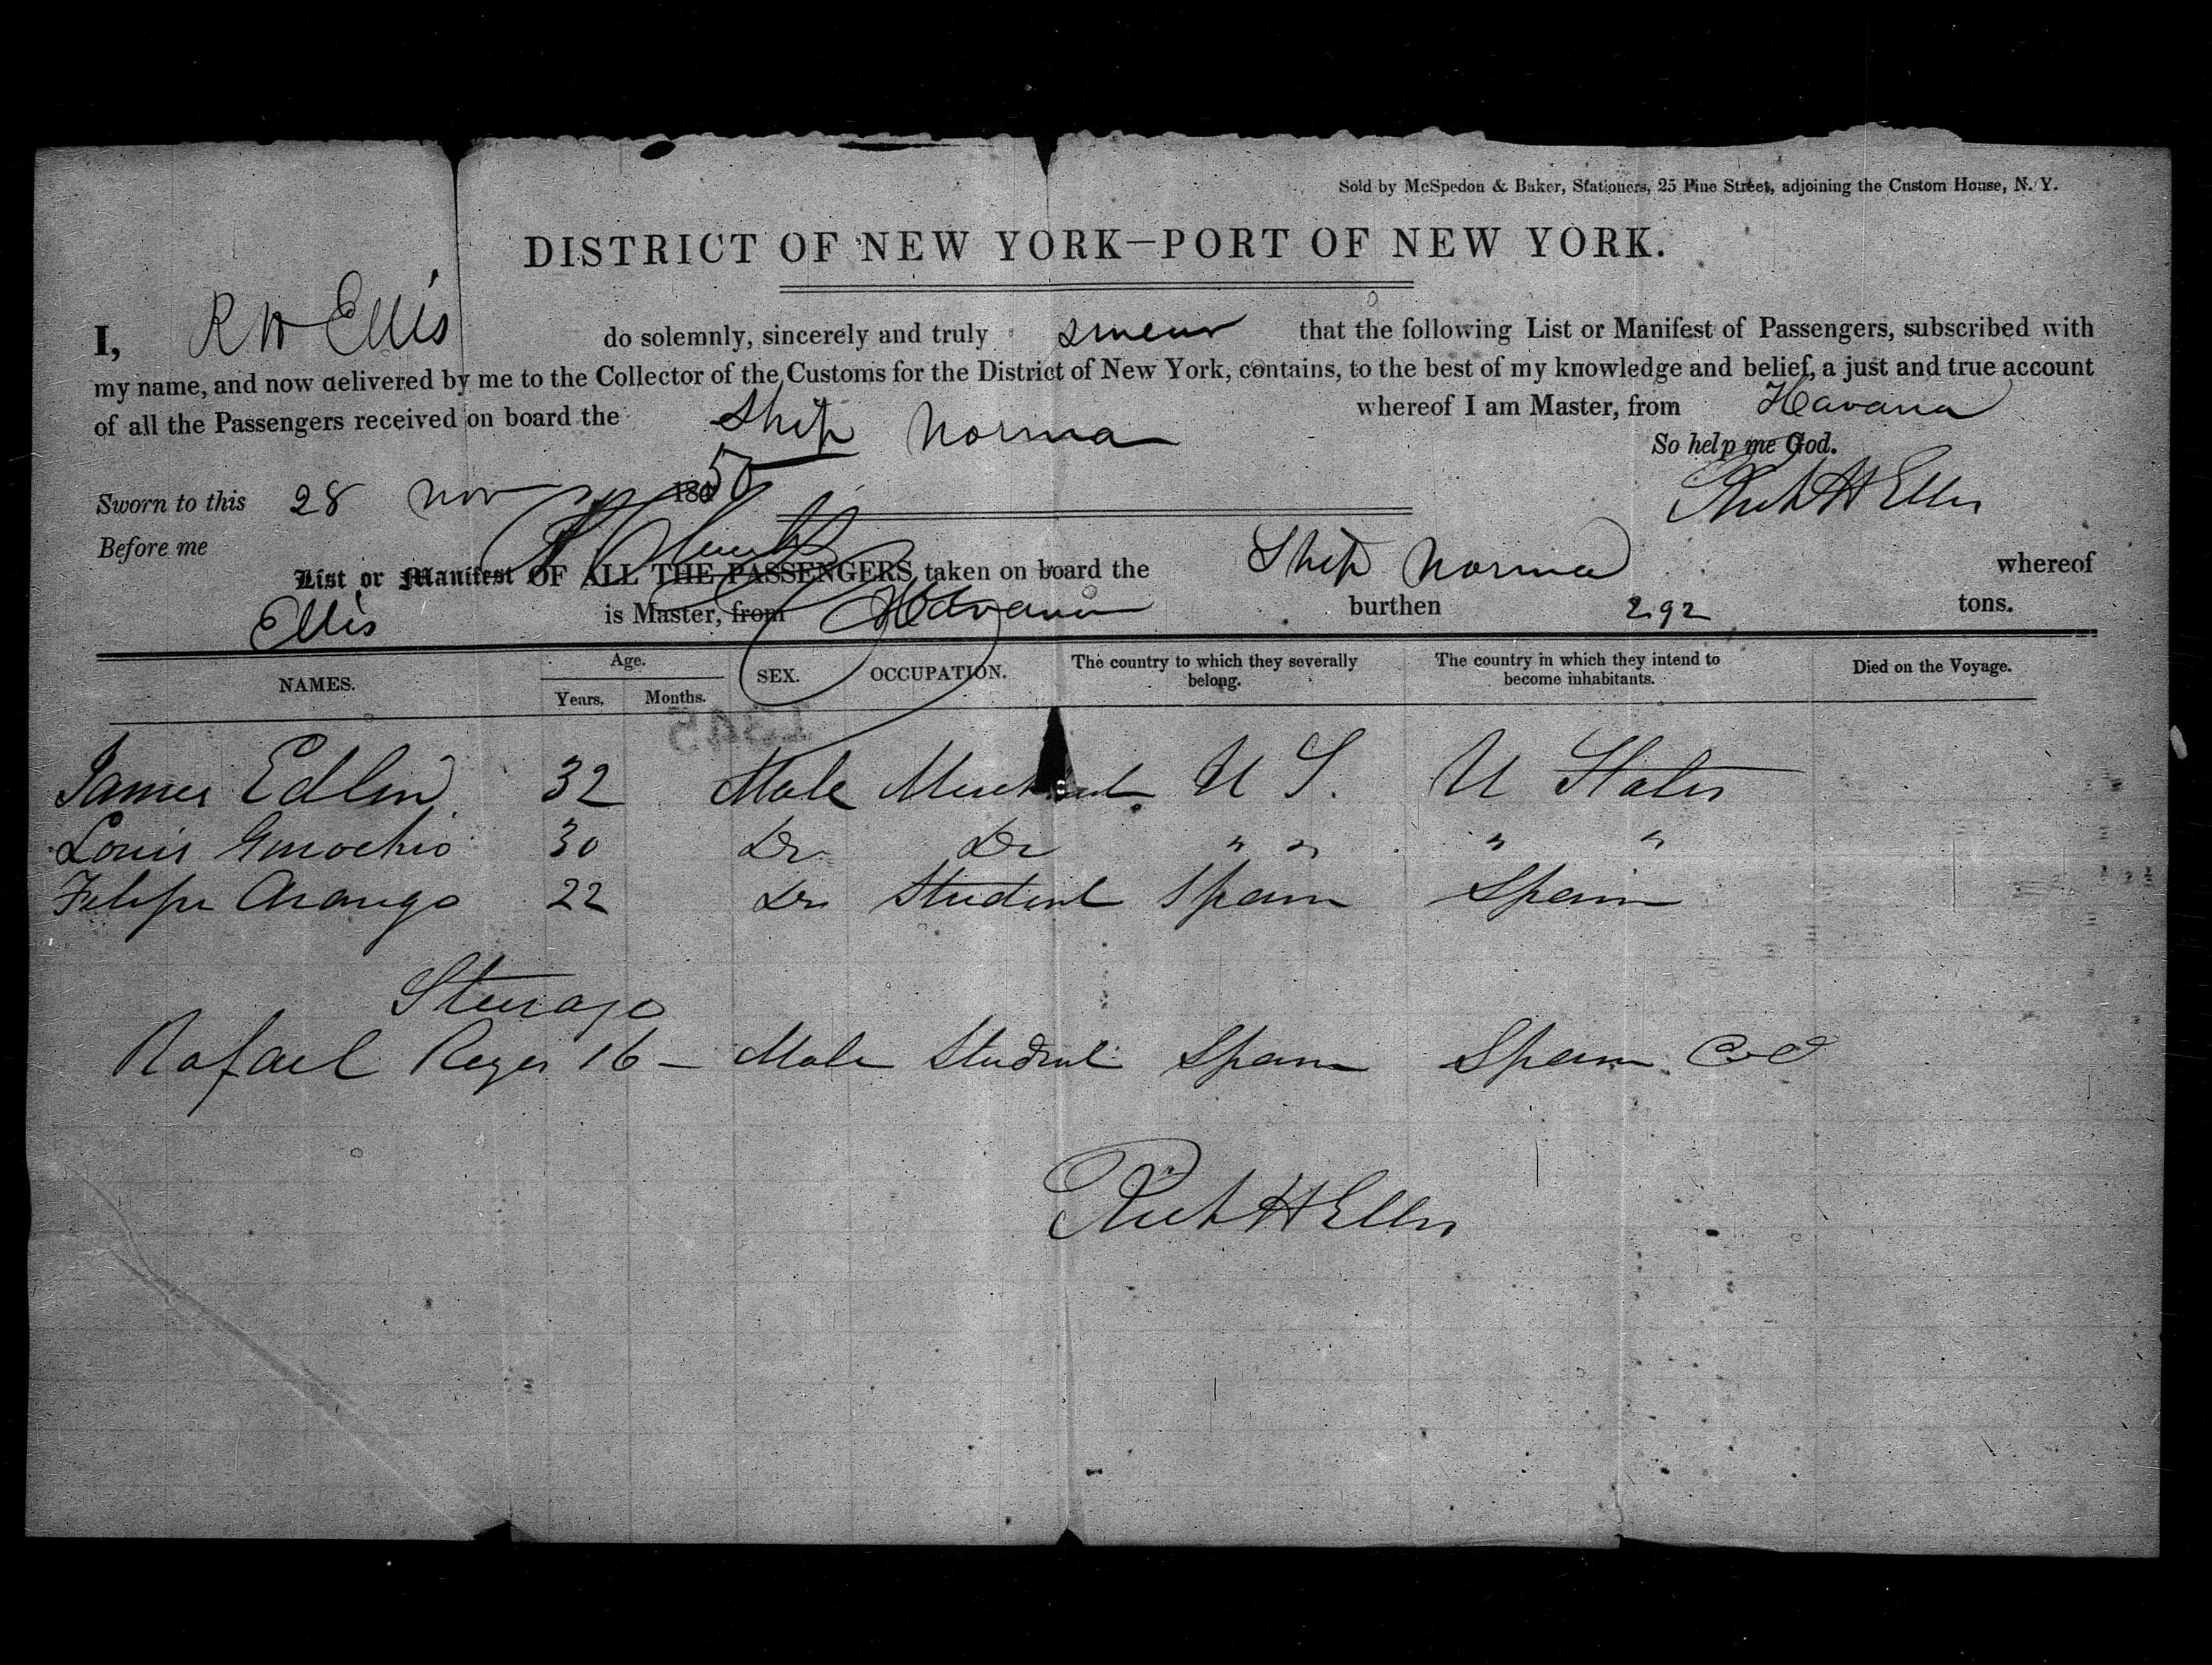 Sold by McSpedon & Baker, Stationers, 25 Pine Street, adjoining the Custom House, N. Y.
DISTRICT OF NEW YORK—PORT OF NEW YORK.
I, R H Ellis do solemnly, sincerely and truly swear that the following List or Manifest of Passengers, subscribed with
my name, and now delivered by me to the Collector of the Customs for the District of New York, contains, to the best of my knowledge and belief, a just and true account
of all the Passengers received on board the Ship Norma whereof I am Master, from Havana
So help me God.
Sworn to this 28 Nov 1850 Rich H Ellis
Before me
List or Manifest OF ALL THE PASSENGERS taken on board the Ship Norma whereof
Ellis is Master, from Havana burthen 292 tons.
NAMES. Age. Years. Months. SEX. OCCUPATION. The country to which they severally belong. The country in which they intend to become inhabitants. Died on the Voyage.
James Edlin 32 Male Merchant U S. U States
Louis Ginochio 30 Do Do " " " "
Felipe Arango 22 Do Student Spain Spain
Steerage
Rafael Reyes 16 – Male Student Spain Spain
Rich H Ellis